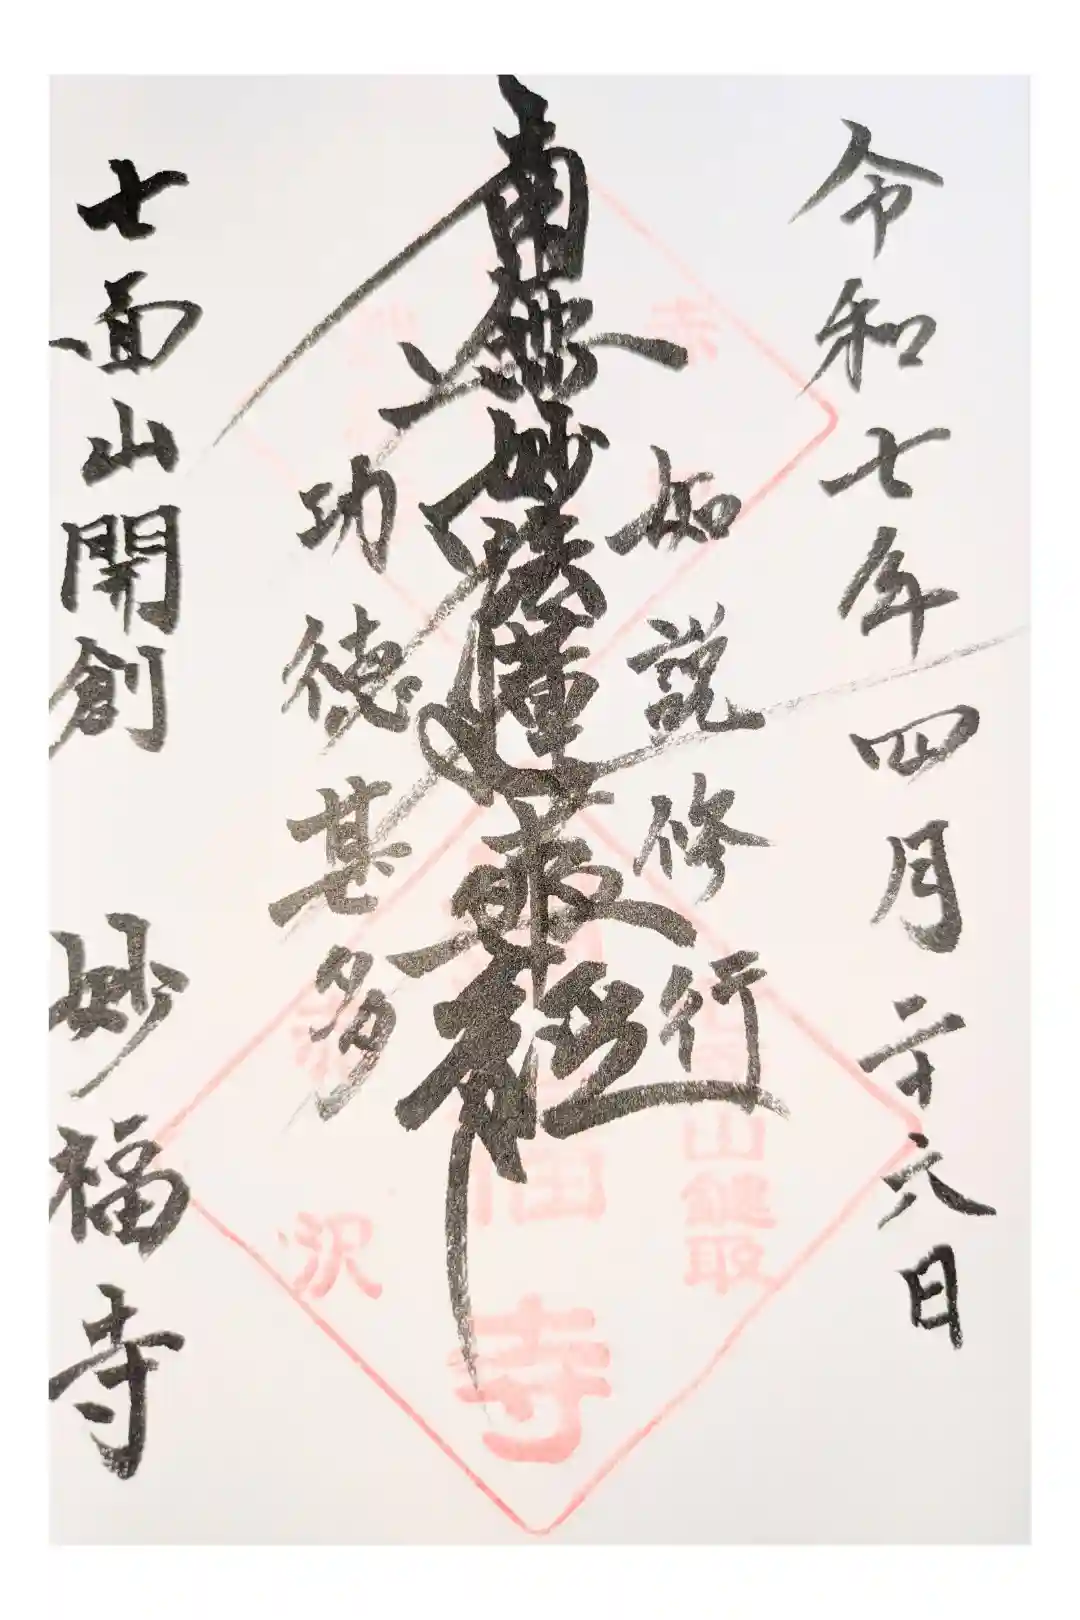 令和七年四月二十六日
如説修行
南無妙法蓮華経
功徳甚多
七面山開創 妙福寺
赤
沢
山鍵取
寺